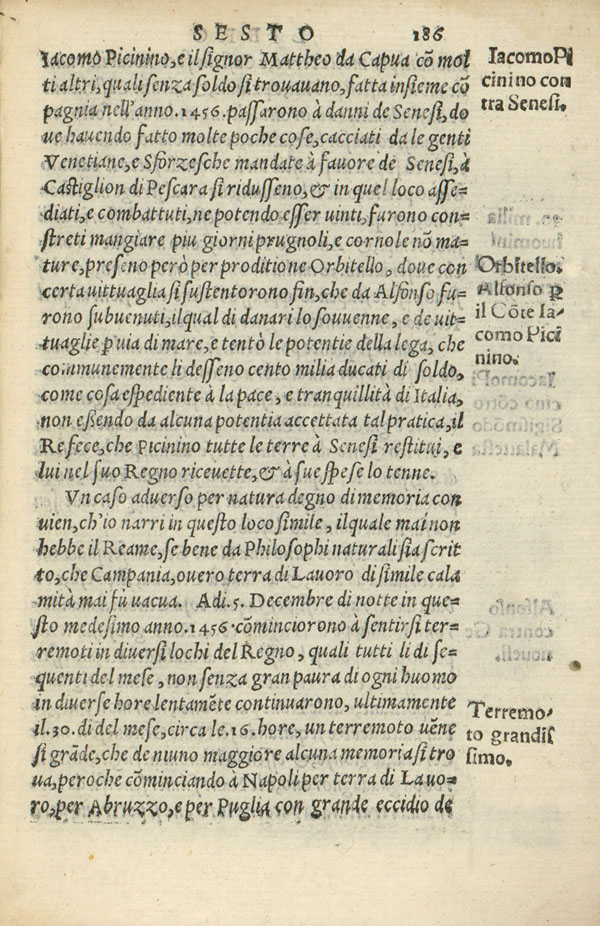 SESTO 186
Iacomo Picinino, e il signor Mattheo da Capua cõ mol
ti altri, quali senza soldo si trouauano, fatta insieme cõ
pagnia nell'anno. 1456. passarono à danni de Senesi, do
ue hauendo fatto molte poche cose, cacciati da le genti
Venetiane, e Sforzesche mandate à fauore de Senesi, à
Castiglion di Pescara si ridusseno, & in quel loco asse=
diati, e combattuti, ne potendo esser uinti, furono con=
streti mangiare piu giorni prugnoli, e cornole nõ ma=
ture, preseno però per proditione Orbitello, doue con
certa uittuaglia si sustentorono fin, che da Alfonso fu=
rono subuenuti, il qual di danari lo souuenne, e de uit=
tuaglie p uia di mare, e tentò le potentie della lega, che
communemente li desseno cento milia ducati di soldo,
come cosa espediente à la pace, e tranquillità di Italia,
non eßendo da alcuna potentia accettata tal pratica, il
Re fece, che Picinino tutte le terre à Senesi restitui, e
lui nel suo Regno riceuette, & à sue spese lo tenne.
Vn caso aduerso per natura degno di memoria con
uien, ch'io narri in questo loco simile, il quale mai non
hebbe il Reame, se bene da Philosophi naturali sia scrit
to, che Campania, ouero terra di Lauoro di simile cala
mità mai fù uacua. Adi. 5. Decembre di notte in que=
sto medesimo anno. 1456. cõminciorono à sentirsi ter=
remoti in diuersi lochi del Regno, quali tutti li di se=
quenti del mese, non senza gran paura di ogni huomo
in diuerse hore lentamẽte continuarono, ultimamente
il. 30. di del mese, circa le. 16. hore, un terremoto uẽne
si grãde, che de niuno maggiore alcuna memoria si tro
ua, peroche cõminciando à Napoli per terra di Lauo=
ro, per Abruzzo, e per Puglia con grande eccidio de
Iacomo Pi
cinino con
tra Senesi.
Orbitello.
Alfonso p
il Cõte Ia-
como Pici
nino.
Terremo-
to grandis
simo.